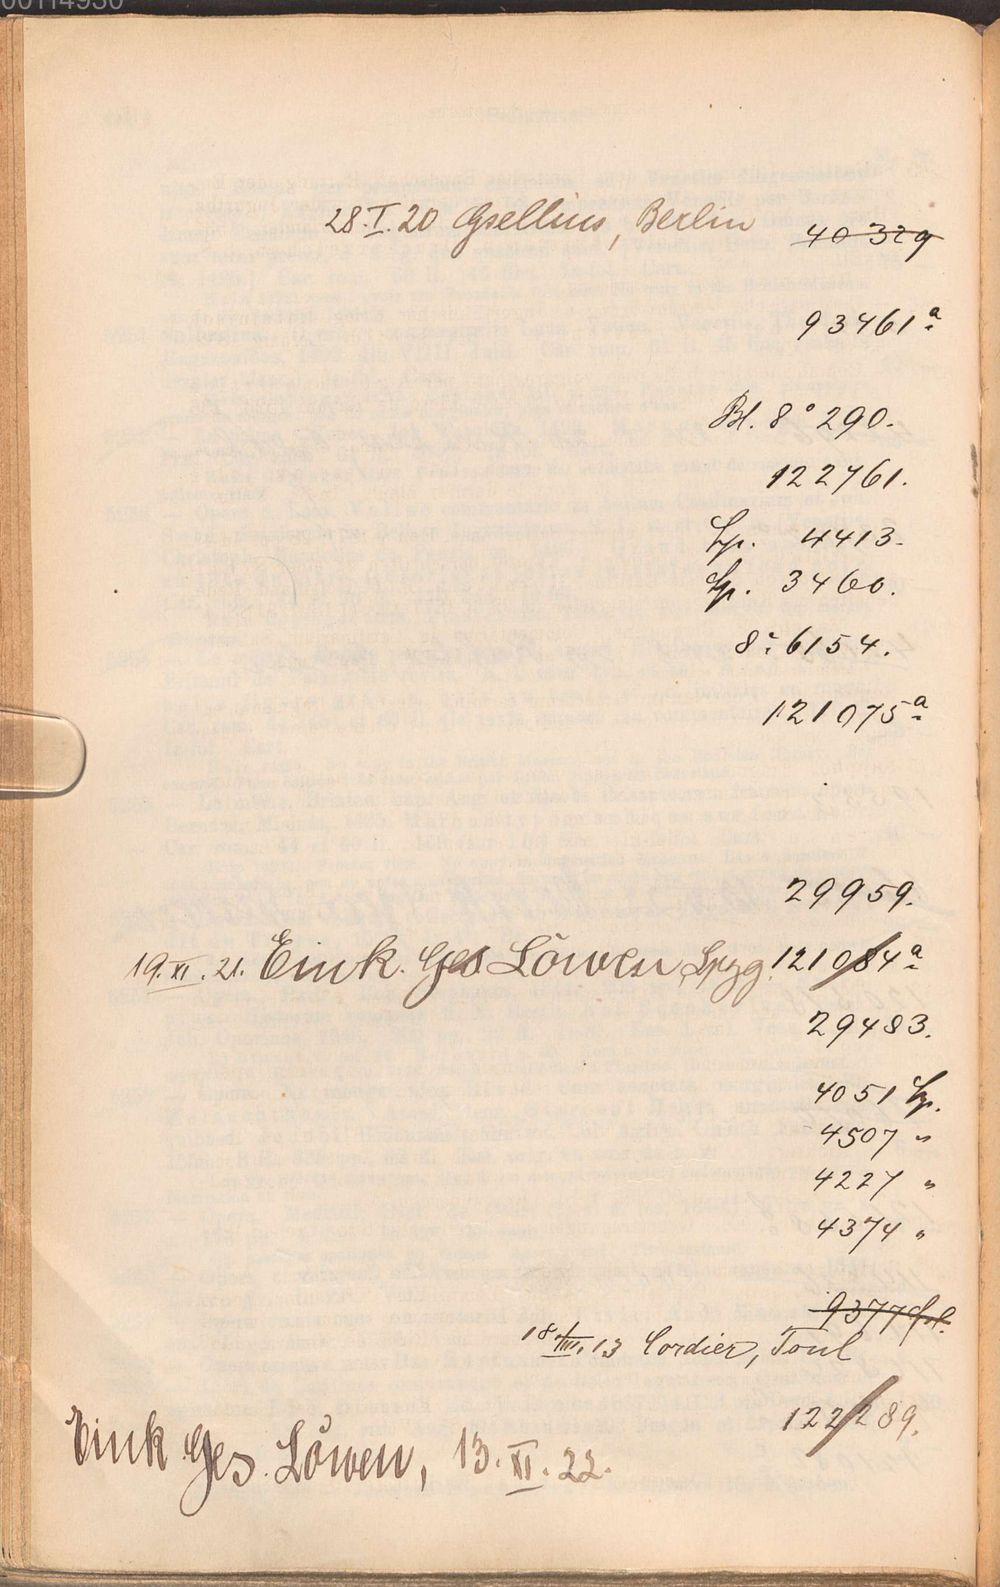 00114930
28.I.20 Gsellius, Berlin 40329
93461a
Bl. 8° 290.
122761.
Lp. 4413.
Lp. 3460.
8° 6154.
121075a
29959.
19.XI.21. Eink. Ges Löwen Lpzg. 121084a
29483.
4051 Lp.
4507 "
4227 "
4374 "
9377
18 13 Cordier, Toul
122289.
Eink Ges. Löwen, 13.XI.22.